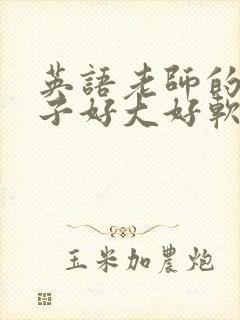 英語老師的
子好大好軟
玉米加農炮